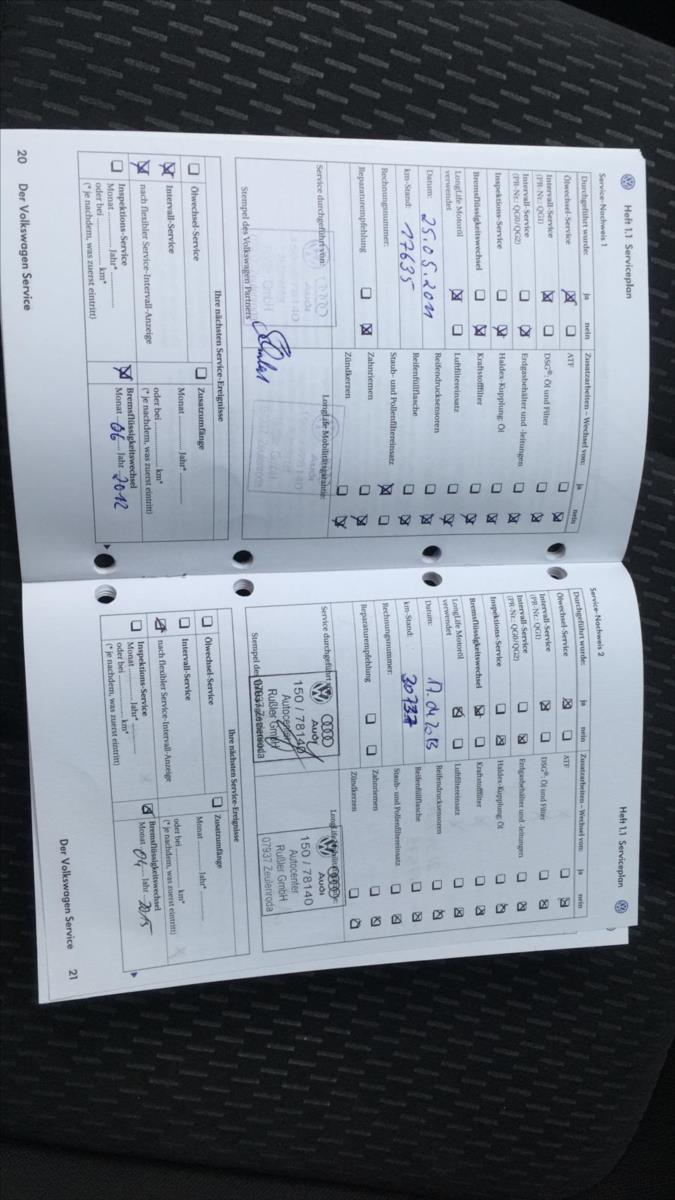 Heft 1.1 Serviceplan
Service-Nachweis 1
Durchgeführt wurde: ja nein
Ölwechsel-Service
Intervall-Service
(PR-Nr.: QG1)
Intervall-Service
(PR-Nr.: QG0/QG2)
Inspektions-Service
Bremsflüssigkeitswechsel
LongLife Motoröl
verwendet
Datum: 25.05.2011
km-Stand: 17635
Rechnungsnummer:
Reparaturempfehlung
Zusatzarbeiten – Wechsel von: ja nein
ATF
DSG®: Öl und Filter
Erdgasbehälter und -leitungen
Haldex-Kupplung: Öl
Kraftstofffilter
Luftfiltereinsatz
Reifendrucksensoren
Reifenfüllflasche
Staub- und Pollenfiltereinsatz
Zahnriemen
Zündkerzen
Service durchgeführt von:
Stempel des Volkswagen Partners
LongLife Mobilitätsgarantie:
Ihre nächsten Service-Ereignisse
Ölwechsel-Service
Intervall-Service
nach flexibler Service-Intervall-Anzeige
Inspektions-Service
Monat Jahr*
oder bei km*
(* je nachdem, was zuerst eintritt)
Zusatzumfänge
Monat Jahr*
oder bei km*
(* je nachdem, was zuerst eintritt)
Bremsflüssigkeitswechsel
Monat 06 Jahr 2012
20 Der Volkswagen Service
Heft 1.1 Serviceplan
Service-Nachweis 2
Durchgeführt wurde: ja nein
Ölwechsel-Service
Intervall-Service
(PR-Nr.: QG1)
Intervall-Service
(PR-Nr.: QG0/QG2)
Inspektions-Service
Bremsflüssigkeitswechsel
LongLife Motoröl
verwendet
Datum: 17.04.2013
km-Stand: 30737
Rechnungsnummer:
Reparaturempfehlung
Zusatzarbeiten – Wechsel von: ja nein
ATF
DSG®: Öl und Filter
Erdgasbehälter und -leitungen
Haldex-Kupplung: Öl
Kraftstofffilter
Luftfiltereinsatz
Reifendrucksensoren
Reifenfüllflasche
Staub- und Pollenfiltereinsatz
Zahnriemen
Zündkerzen
Service durchgeführt
Audi
150 / 78140
Autocenter
Rußler GmbH
07937 Zeulenroda
Stempel des
Audi
150 / 78140
Autocenter
Rußler GmbH
07937 Zeulenroda
Ihre nächsten Service-Ereignisse
Ölwechsel-Service
Intervall-Service
nach flexibler Service-Intervall-Anzeige
Inspektions-Service
Monat Jahr*
oder bei km*
(* je nachdem, was zuerst eintritt)
Zusatzumfänge
Monat Jahr*
oder bei km*
(* je nachdem, was zuerst eintritt)
Bremsflüssigkeitswechsel
Monat 04 Jahr 2015
Der Volkswagen Service 21